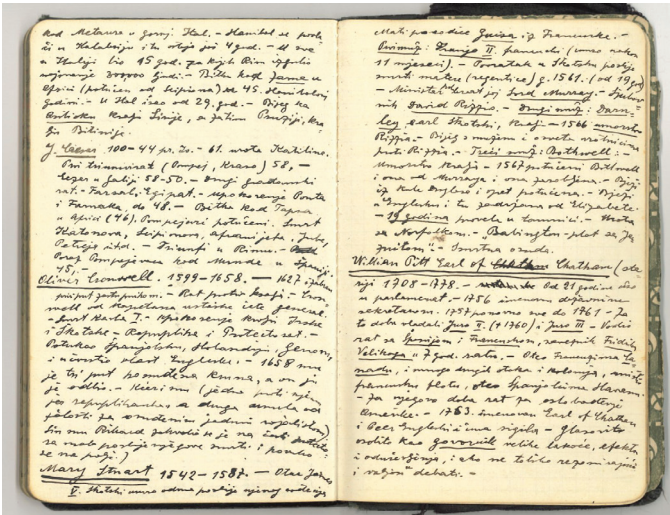 kod Metaura u gornj Ital. – Hanibal se povla
či u Kalabriju i tu ostaje još 4 god. – U sve
u Italiji bio 15 god. za kojih Rim izgubio
300000 ljudi. – Bitka kod Zama u
Africi (potučen od Scipiona) sa 45. Hanibalovoj
godini. – U Ital. išao od 29. god. – Bijeg ka
Antiohu kralju Sirije, a zatim Prusiji, kra
lju Bitinije.
J. Cezar 100–44 pr. – 61. urota Katiline.
Prvi triumvirat (Pompej, Kraso) 58,
Cezar u Galiji 58–50. – Drugi građanski
rat. – Farsal. Egipat. – Ponta
i Farnaka, do 48. – Bitka kod Tapsa
u Africi (46). Pompejevci potučeni. Smrt
Katonova, Scipionova, Juba,
itd. – Triumfi u Rimu. –
Poraz Pompejevaca kod Munde u Španiji
45.
Oliver Cromwell. 1599–1658. – 1627
prvi put – Rat protiv kralja. – Crom
well od kapetana ostaje general.
– Smrt Karla I. – Irske
i Škotske – Republika i Protectorat. –
Potukao Španjolsku, Holandiju, Genovu,
i učvrstio vlast Engleske. – 1658 mu
je tri put ponuđena kruna, a on ju
je odbio. – Kćeri mu (jedna
jer republikanka a druga umrla od
žalosti za
Sin mu Rikard zahvalio se je na časti
za malo poslije njegove smrti i povukao
se na polje.)
Mary Stuart 1542–1587. – Otac Jakov
V. Škotski umro odmah poslije njenog rođenja
Mati porodice Guisa iz Francuske. –
Prvi muž: Franjo II. francuski (umro nakon
11 mjeseci). – Povratak u Škotsku poslije
smrti matere (regentice) g. 1561. (od 19 god)
– Ministar brat joj lord Murray. –
nik David Rizzio. – Drugi muž: Darn-
ley earl škotski, kralj – 1566 umorstvo
Rizzia. – Bijeg s mužem i osveta urotnicima
protiv Rizzia. – Treći muž: Bothwell: –
Umorstvo kralja – 1567 potučeni Bothwell
i ona od Murraya i ona zarobljena. – Bježi
iz kule Douglas i opet potučena. – Bježi
u Englesku i tu zadržana od Elizabete.
– 19 godina provela u tamnici. – Urota
sa Norfolkom. – "Babington-plot sa Je
zuitom" – Smrtna osuda.
William Pitt Earl of Chatham (sta
riji 1708–1778. – Od 21 godine ušao
u parlamenat. – 1756 imenovan državnim
sekretarom. 1757 ponovno sve do 1761 – Za
to doba vladali Juro II. († 1760) i Juro III – Vodio
rat sa Španijom i Francuskom, saveznik Fridrika
Velikoga u 7 god. ratu. – Oteo Francuzima Ka
nadu, i mnogo drugih otoka i kolonija, uništio
francusku flotu, oteo Španjolcima Havanu.
– Za njegovo doba rat za oslobođenje
Amerike. – 1763. imenovan Earl of Chatham
i Peer Engleski – Glasovit
osobito kao govornik velike lakoće, efekta
i oduševljenja, i ako ne toliko
i u debati. –